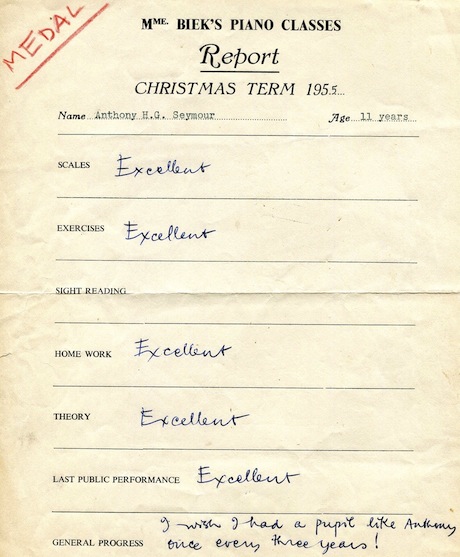 MEDAL
MME. BIEK'S PIANO CLASSES
Report
CHRISTMAS TERM 1955...
Name Anthony H.G. Seymour Age 11 years
SCALES Excellent
EXERCISES Excellent
SIGHT READING
HOME WORK Excellent
THEORY Excellent
LAST PUBLIC PERFORMANCE Excellent
I wish I had a pupil like Anthony
GENERAL PROGRESS once every three years!